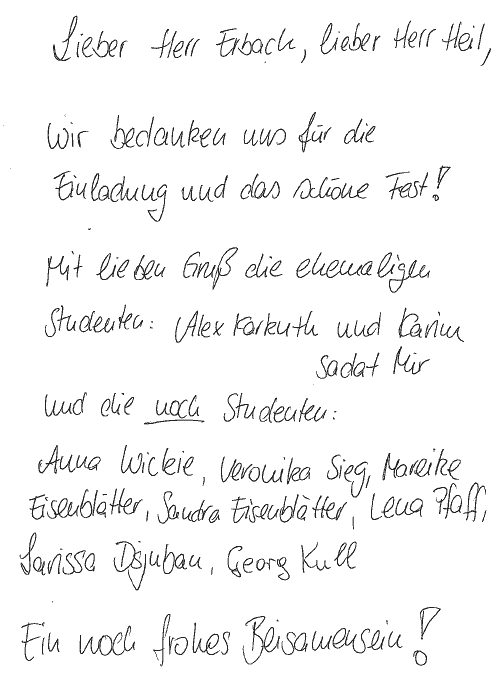 Lieber Herr Erbach, lieber Herr Heil,
Wir bedanken uns für die
Einladung und das schöne Fest!
Mit lieben Gruß die ehemaligen
Studenten: Alex Karkuth und Karim
Sadat Mir
Und die noch Studenten:
Anna Wickie, Veronika Sieg, Mareike
Eisenblätter, Sandra Eisenblätter, Lena Pfaff,
Larissa Dsjuban, Georg Kull
Ein noch frohes Beisamensein!